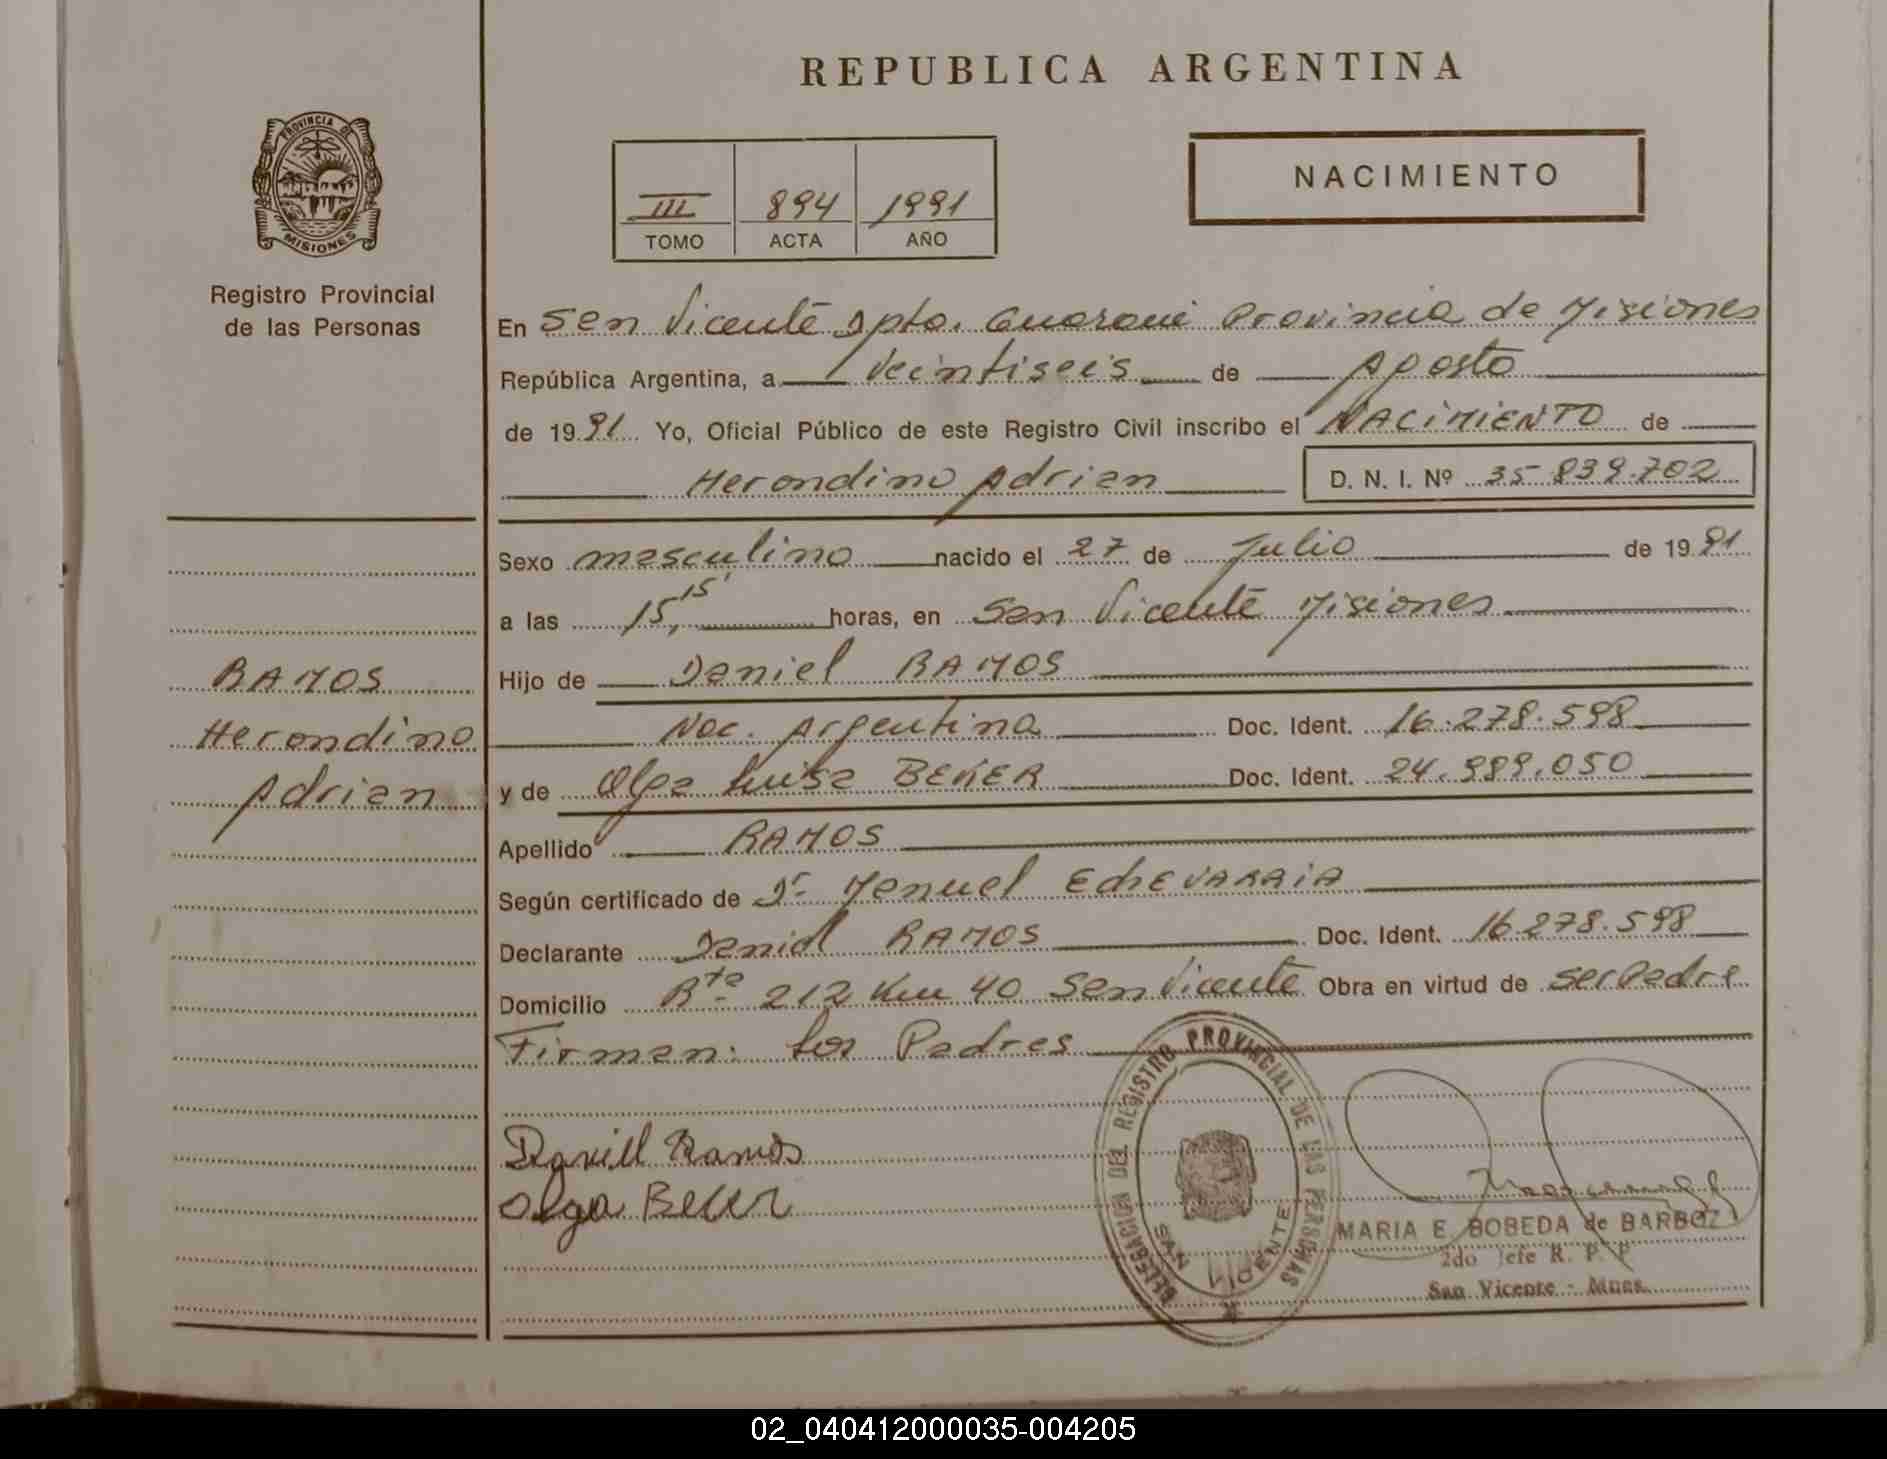 REPUBLICA ARGENTINA
PROVINCIA DE
MISIONES
Registro Provincial
de las Personas
III 894 1991
TOMO ACTA AÑO
NACIMIENTO
En San Vicente Dpto. Guaraní Provincia de Misiones
República Argentina, a veintiseis de Agosto
de 1991 Yo, Oficial Público de este Registro Civil inscribo el NACIMIENTO de
Herondino Adrian D. N. I. Nº 35.839.702
Sexo masculino nacido el 27 de Julio de 1991
a las 15,15' horas, en San Vicente Misiones
Hijo de Daniel RAMOS
Nac. Argentina Doc. Ident. 16.278.598
y de Olga Luisa BEKER Doc. Ident. 24.999.050
Apellido RAMOS
Según certificado de Dr. Manuel EchEVARRiA
Declarante Daniel RAMOS Doc. Ident. 16.278.598
Domicilio Rta 212 Km 40 San Vicente Obra en virtud de ser Padre
Firman: Los Padres
RAMOS
Herondino
Adrian
Daniell Ramos
Olga Becer
DELEGACION DEL REGISTRO PROVINCIAL DE LAS PERSONAS
SAN VICENTE
MARIA E. BOBEDA de BARBOZ
2do Jefe R. P. P.
San Vicente - Mnes.
02_040412000035-004205